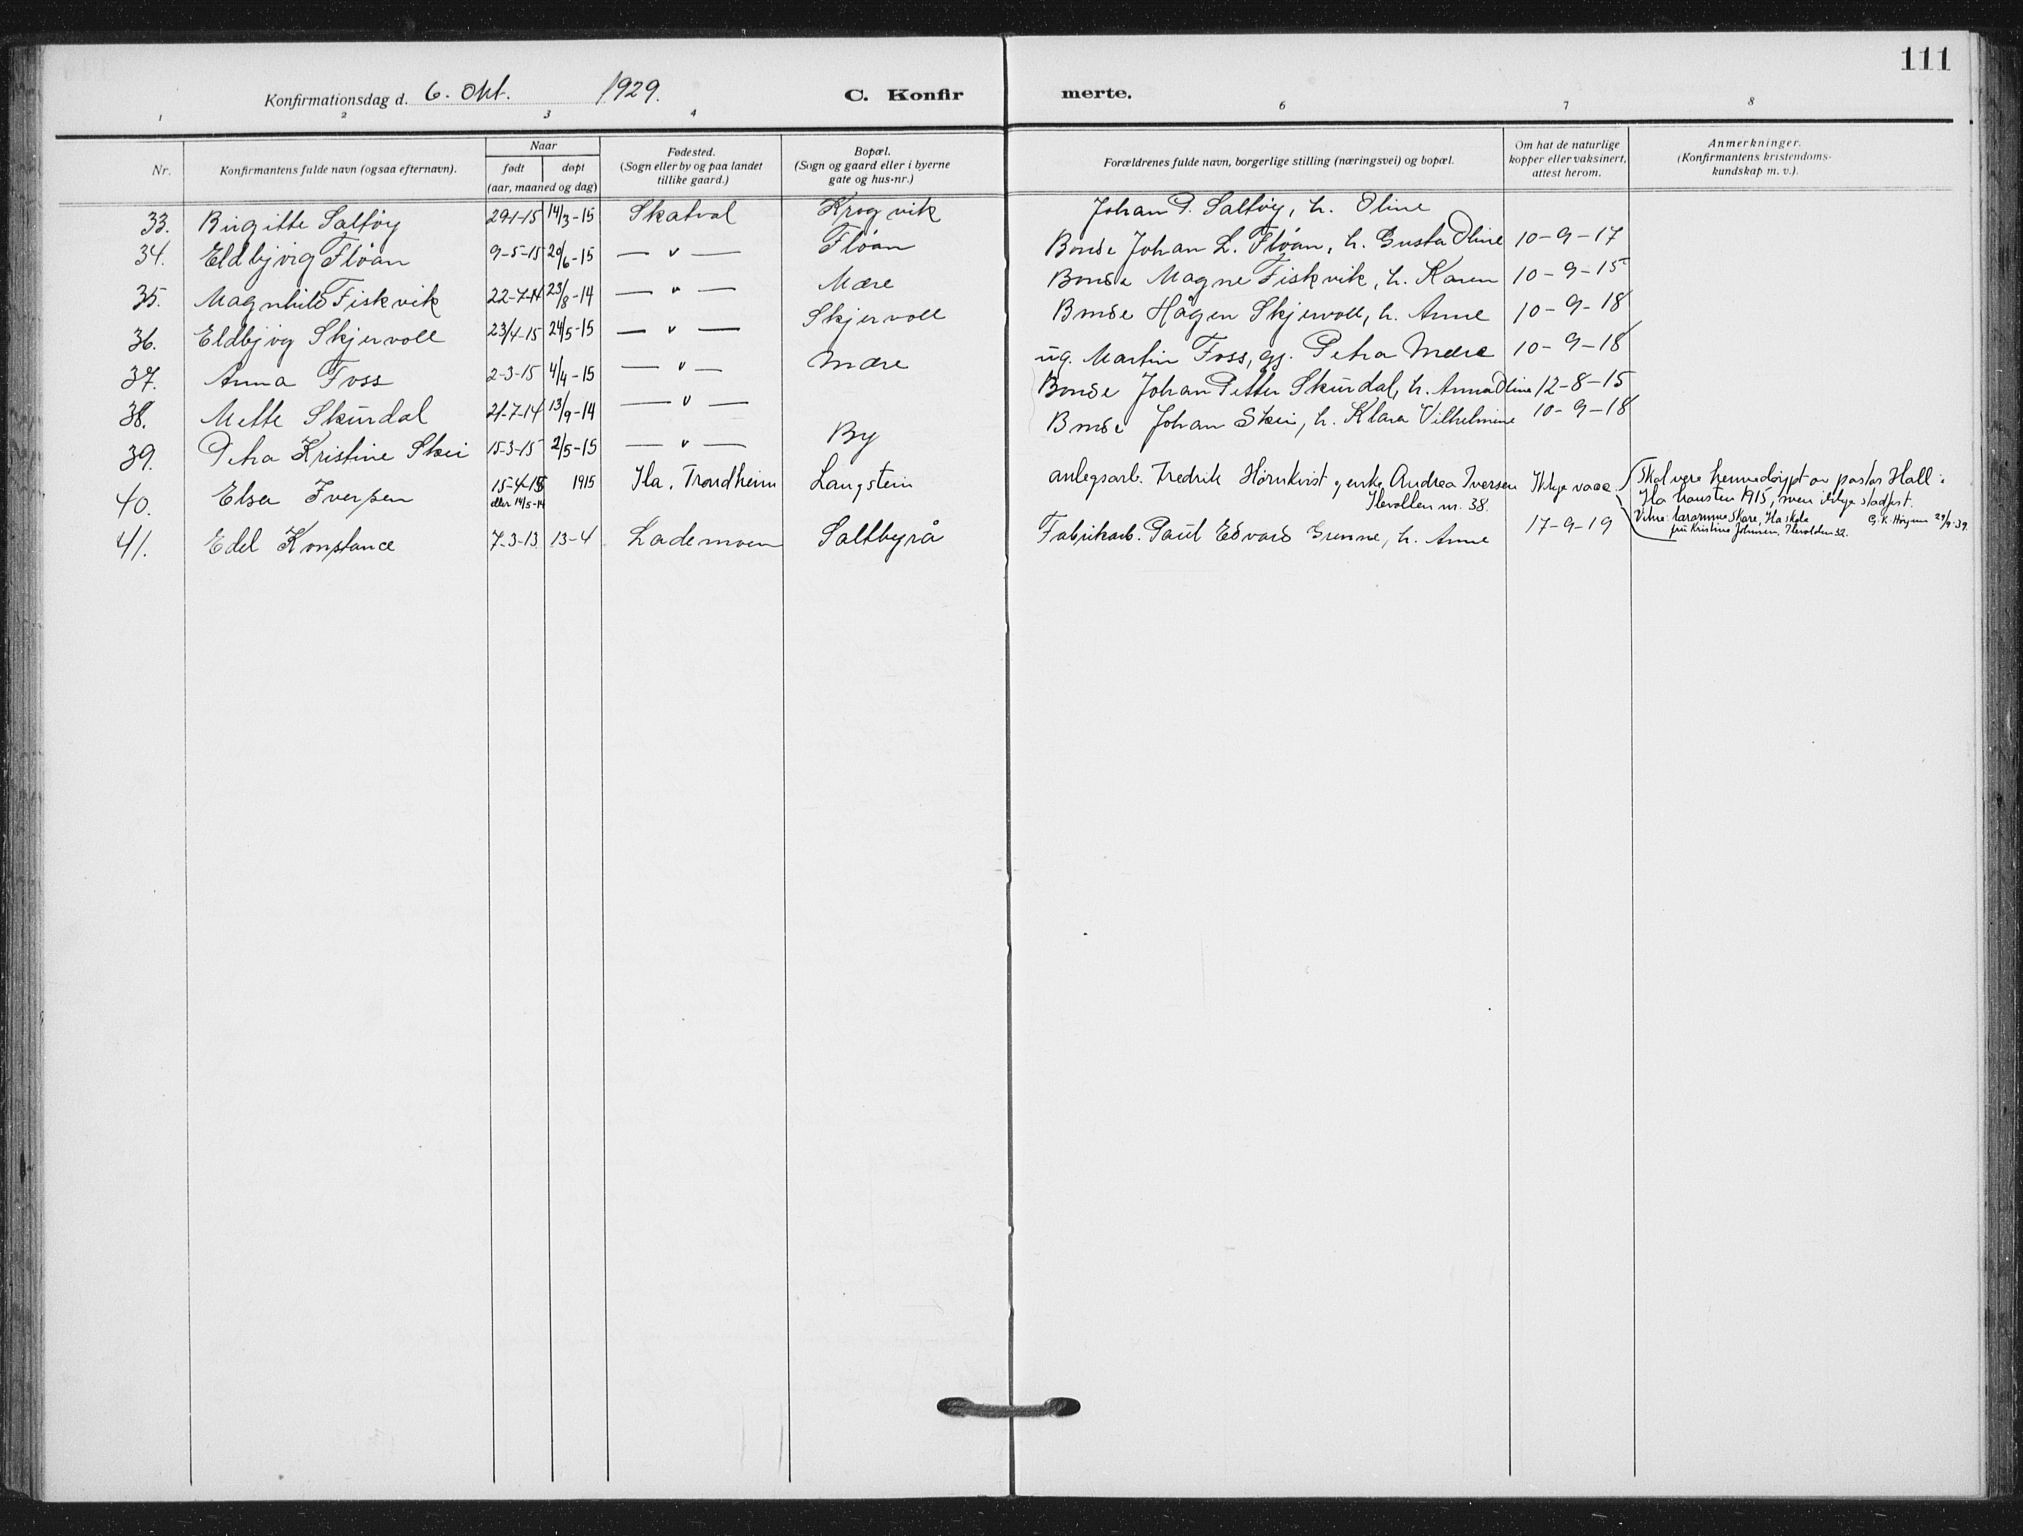 111
Konfirmationsdag d. 6. Okt. 1929. C. Konfirmerte.
1 2 3 4 6 7 8
Nr. Konfirmantens fulde navn (ogsaa efternavn). Naar født døpt (aar, maaned og dag) Fødested. (Sogn eller by og paa landet tillike gaard.) Bopæl. (Sogn og gaard eller i byerne gate og hus-nr.) Forældrenes fulde navn, borgerlige stilling (næringsvei) og bopæl. Om hat de naturlige kopper eller vaksinert, attest herom. Anmerkninger. (Konfirmantens kristendomskundskap m. v.).
33. Birgitte Saltøy 29-1-15 14/3-15 Skatval Krogvik Johan P. Saltøy, h. Oline
34. Eldbjørg Fløan 9-5-15 20/6-15 — " — Fløan Bonde Johan L. Fløan, h. Gusta Oline 10-9-17
35. Magnhild Fiskvik 22-7-14 23/8-14 — " — Mære Bonde Magne Fiskvik, h. Karen 10-9-15
36. Eldbjørg Skjervoll 23/4-15 24/5-15 — " — Skjervoll Bonde Hågen Skjervoll, h. Anne 10-9-18
37. Anna Foss 2-3-15 4/4-15 — " — Mære ug. Martin Foss, gj. Petra Mære 10-9-18
38. Mette Skurdal 21-7-14 13/9-14 — " — Bonde Johan Petter Skurdal, h. Anna Oline 12-8-15
39. Petra Kristine Skei 15-3-15 2/5-15 — " — By Bonde Johan Skei, h. Klara Vilhelmine 10-9-18
40. Elsa Iversen 15-4-15 eller 14/5-14 1915 Ila, Trondheim Langstein anlegsarb. Fredrik Hørnkvist g enke Andrea Iversen Ilevollen nr. 38. Ikkje vacc. Skal vere heimedøypt av pastor Hall i
Ila hausten 1915, men ikkje stadfest.
Vitne: Skare, Ila skole
fru Kristine Johnsen, Ilevolden 32. 29/9-39.
41. Edel Konstance 7-3-13 13-4 Lademoen Saltbyrå Fabrikarb. Paul Edvard Grenne, h. Anne 17-9-19